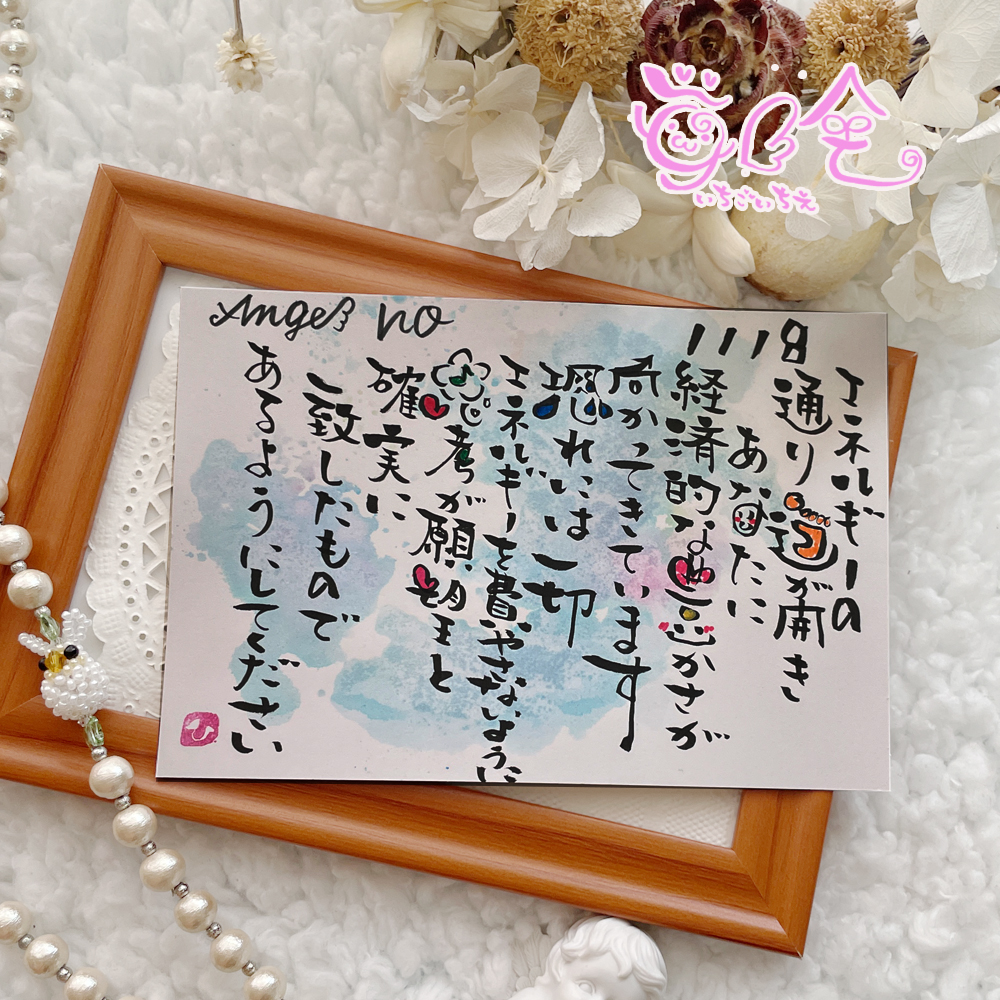 いちごいちえ
Angel no 1118
エネルギーの
通り道が開き
あなたに
経済的な豊かさが
向かってきています
恐れには一切
エネルギーを費やさないように
思考が願望と
確実に
一致したもので
あるようにしてください